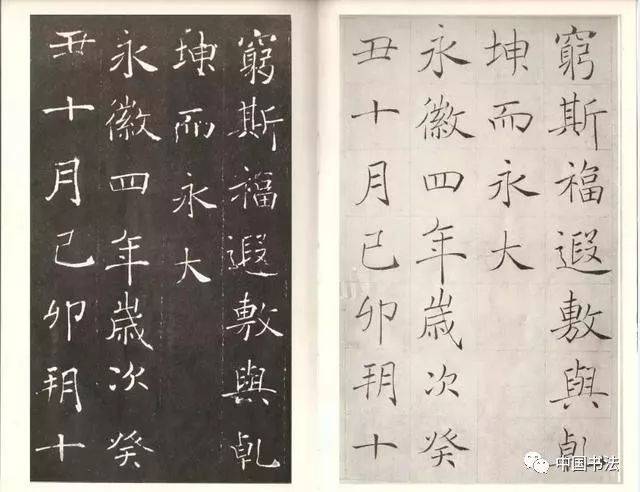 窮斯福遐敷與乹
坤而永大
永徽四年歲次癸
丑十月己卯朔十
窮斯福遐敷與乹
坤而永大
永徽四年歲次癸
丑十月己卯朔十
中国书法